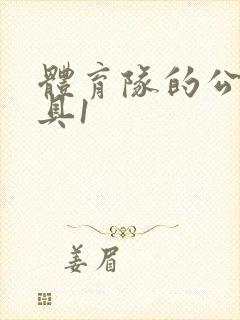 體育隊的公
具1
姜眉